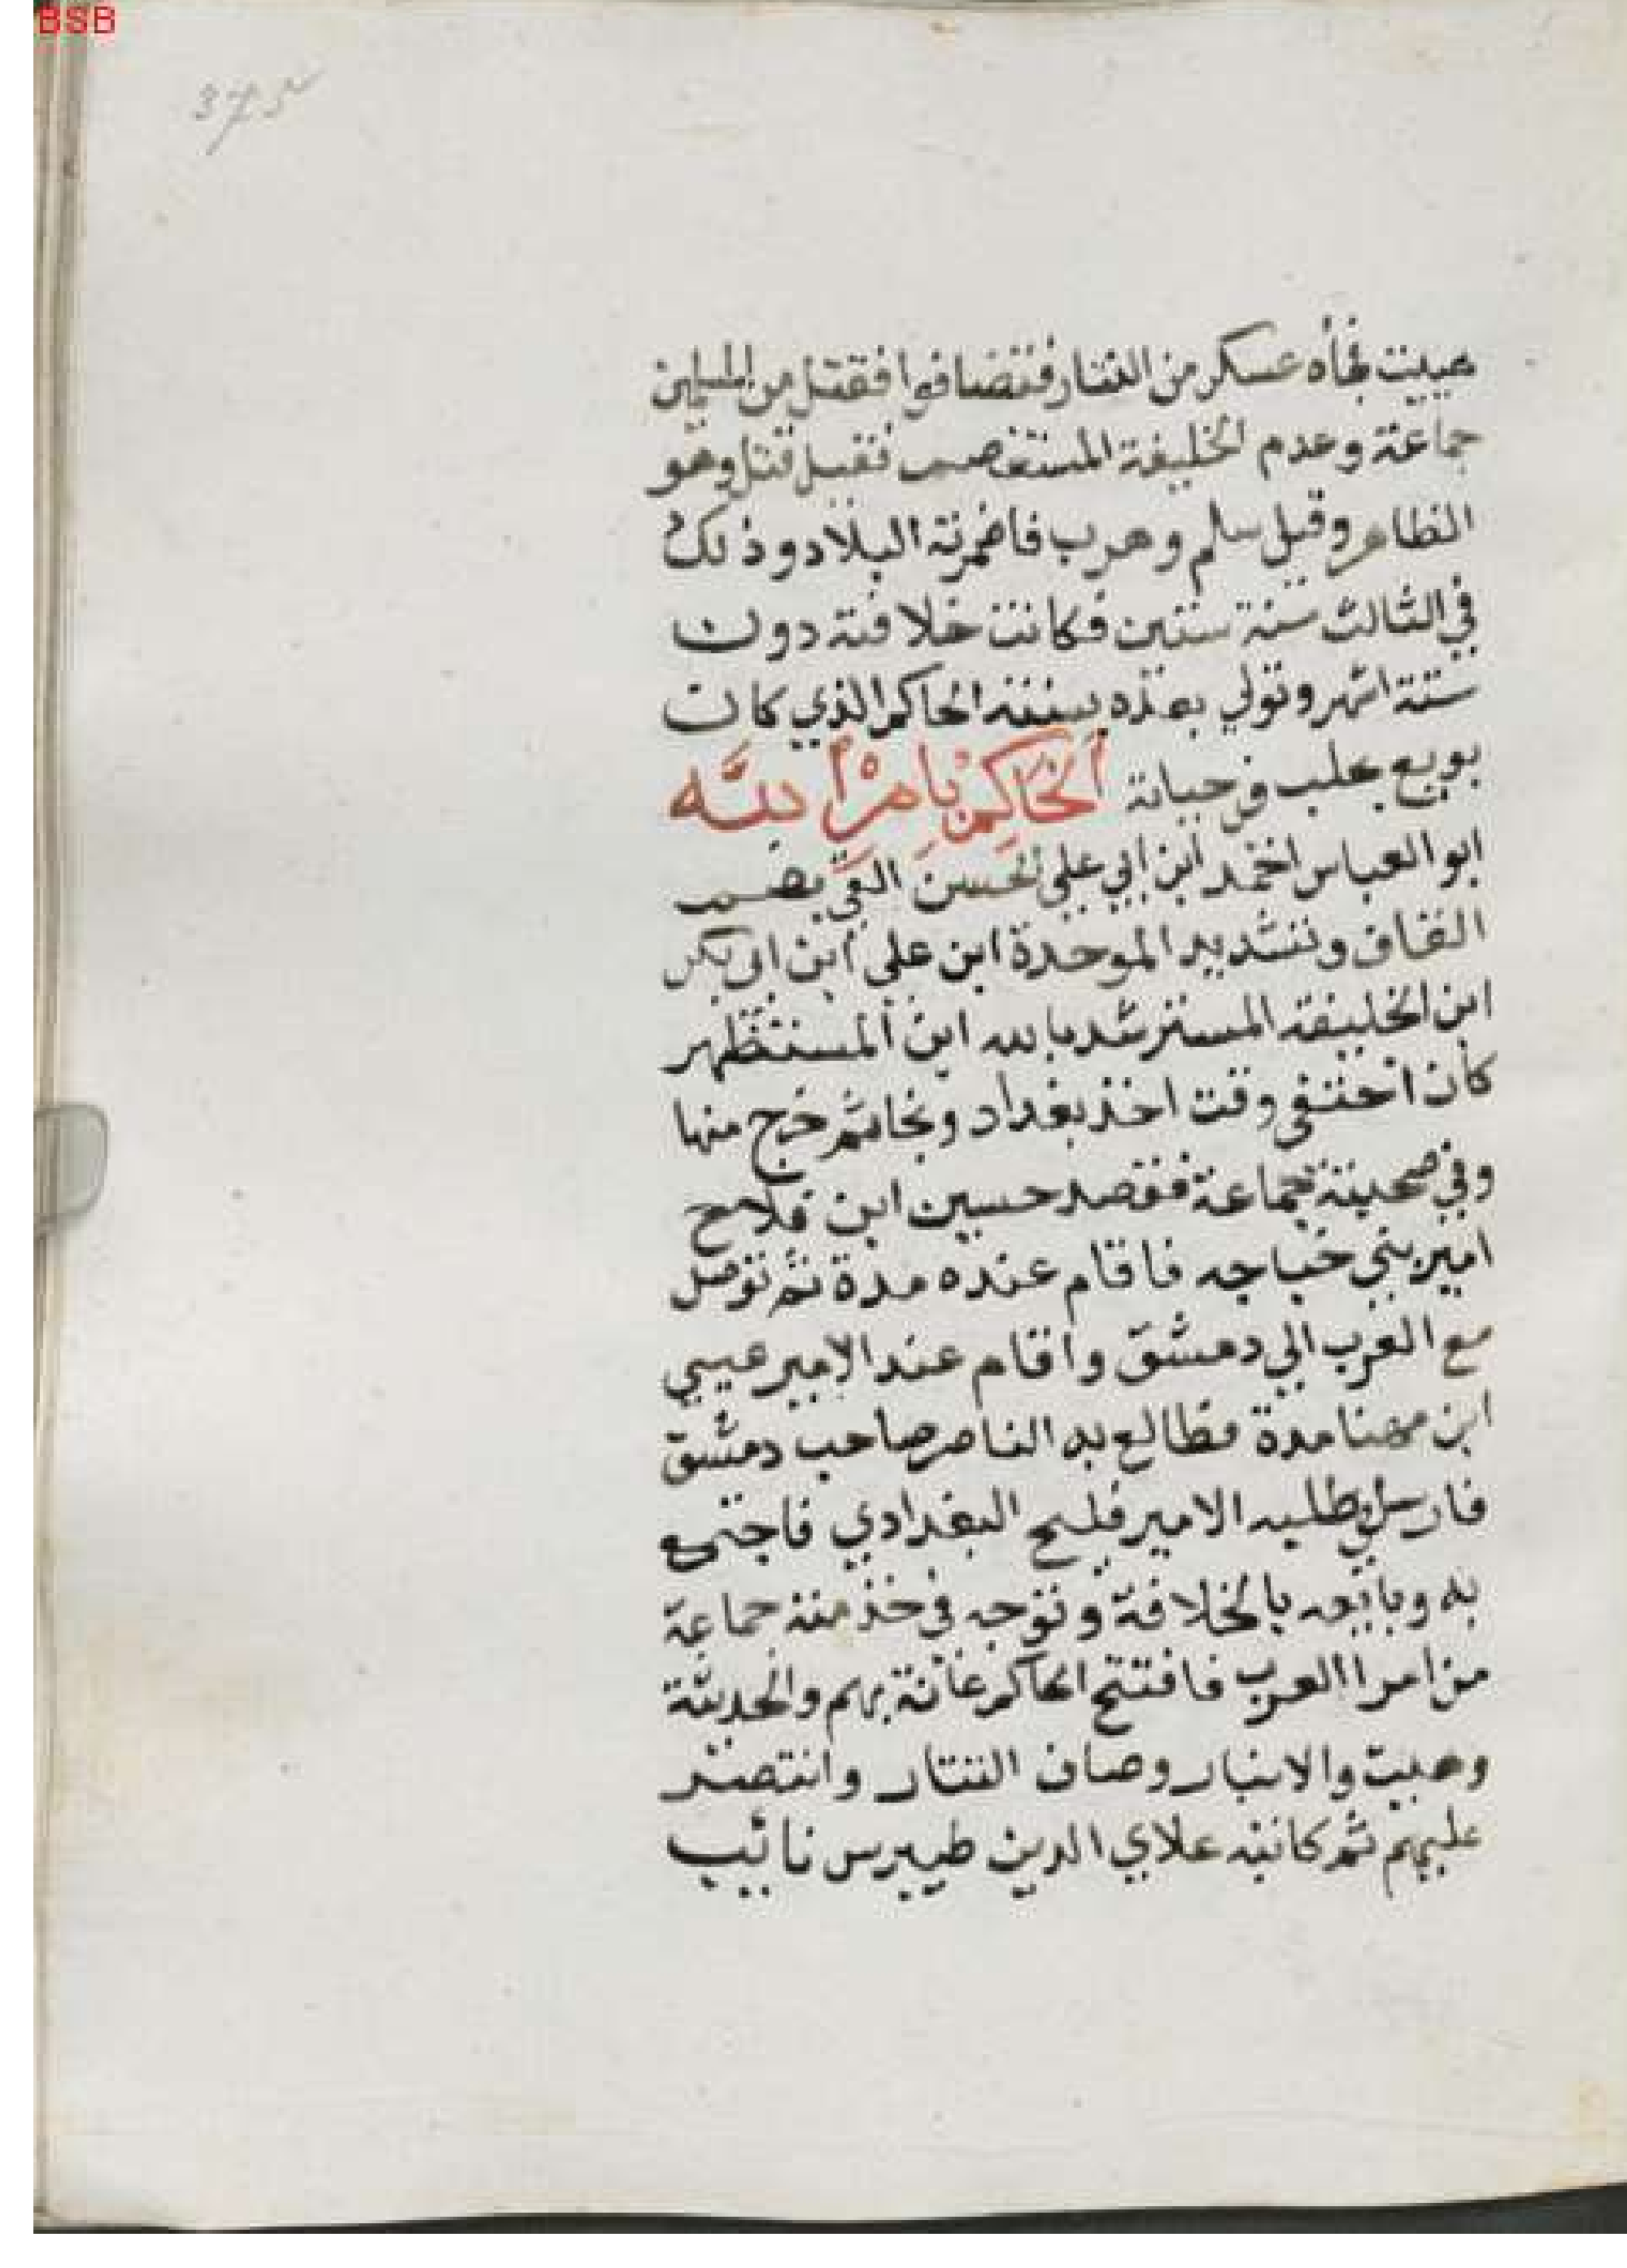 BSB
375
هييت فجأه عسكر من التتار فتصافوا فقتل من المسلمين
جماعة وعدم الخليفة المستنصر فقيل قتل وهو
الظاهر وقيل سلم وهرب فاضمرته البلاد وذلك
في الثالث سنة ستين فكانت خلافته دون
ستة اشهر وتولي بعده بسنة الحاكم الذي كان
بويع بحلب في حياته الحَاكِمْ بِامْرِ اللَّه
ابو العباس احمد ابن ابي علي الحسن القبي بضم
القاف وتشديد الموحدة ابن علي ابن ابي بكر
ابن الخليفة المسترشد بالله ابن المستظهر
كان اختفي وقت اخذ بغداد ونجا ثم خرج منها
وفي صحبته جماعة فقصد حسين ابن فلاح
امير بني خباجه فاقام عنده مدة ثم توصل
مع العرب الي دمشق واقام عند الامير عيسي
ابن مهنا مدة فطالع به الناصر صاحب دمشق
فارسل يطلبه الامير قليج البغدادي فاجتمع
به وبايعه بالخلافة وتوجه في خدمته جماعة
من امرا العرب فافتتح الحاكم غانة بهم والحديثة
وهيت والانبار وصاف التتار وانتصر
عليهم ثم كاتبه علاي الدين طيبرس نائب